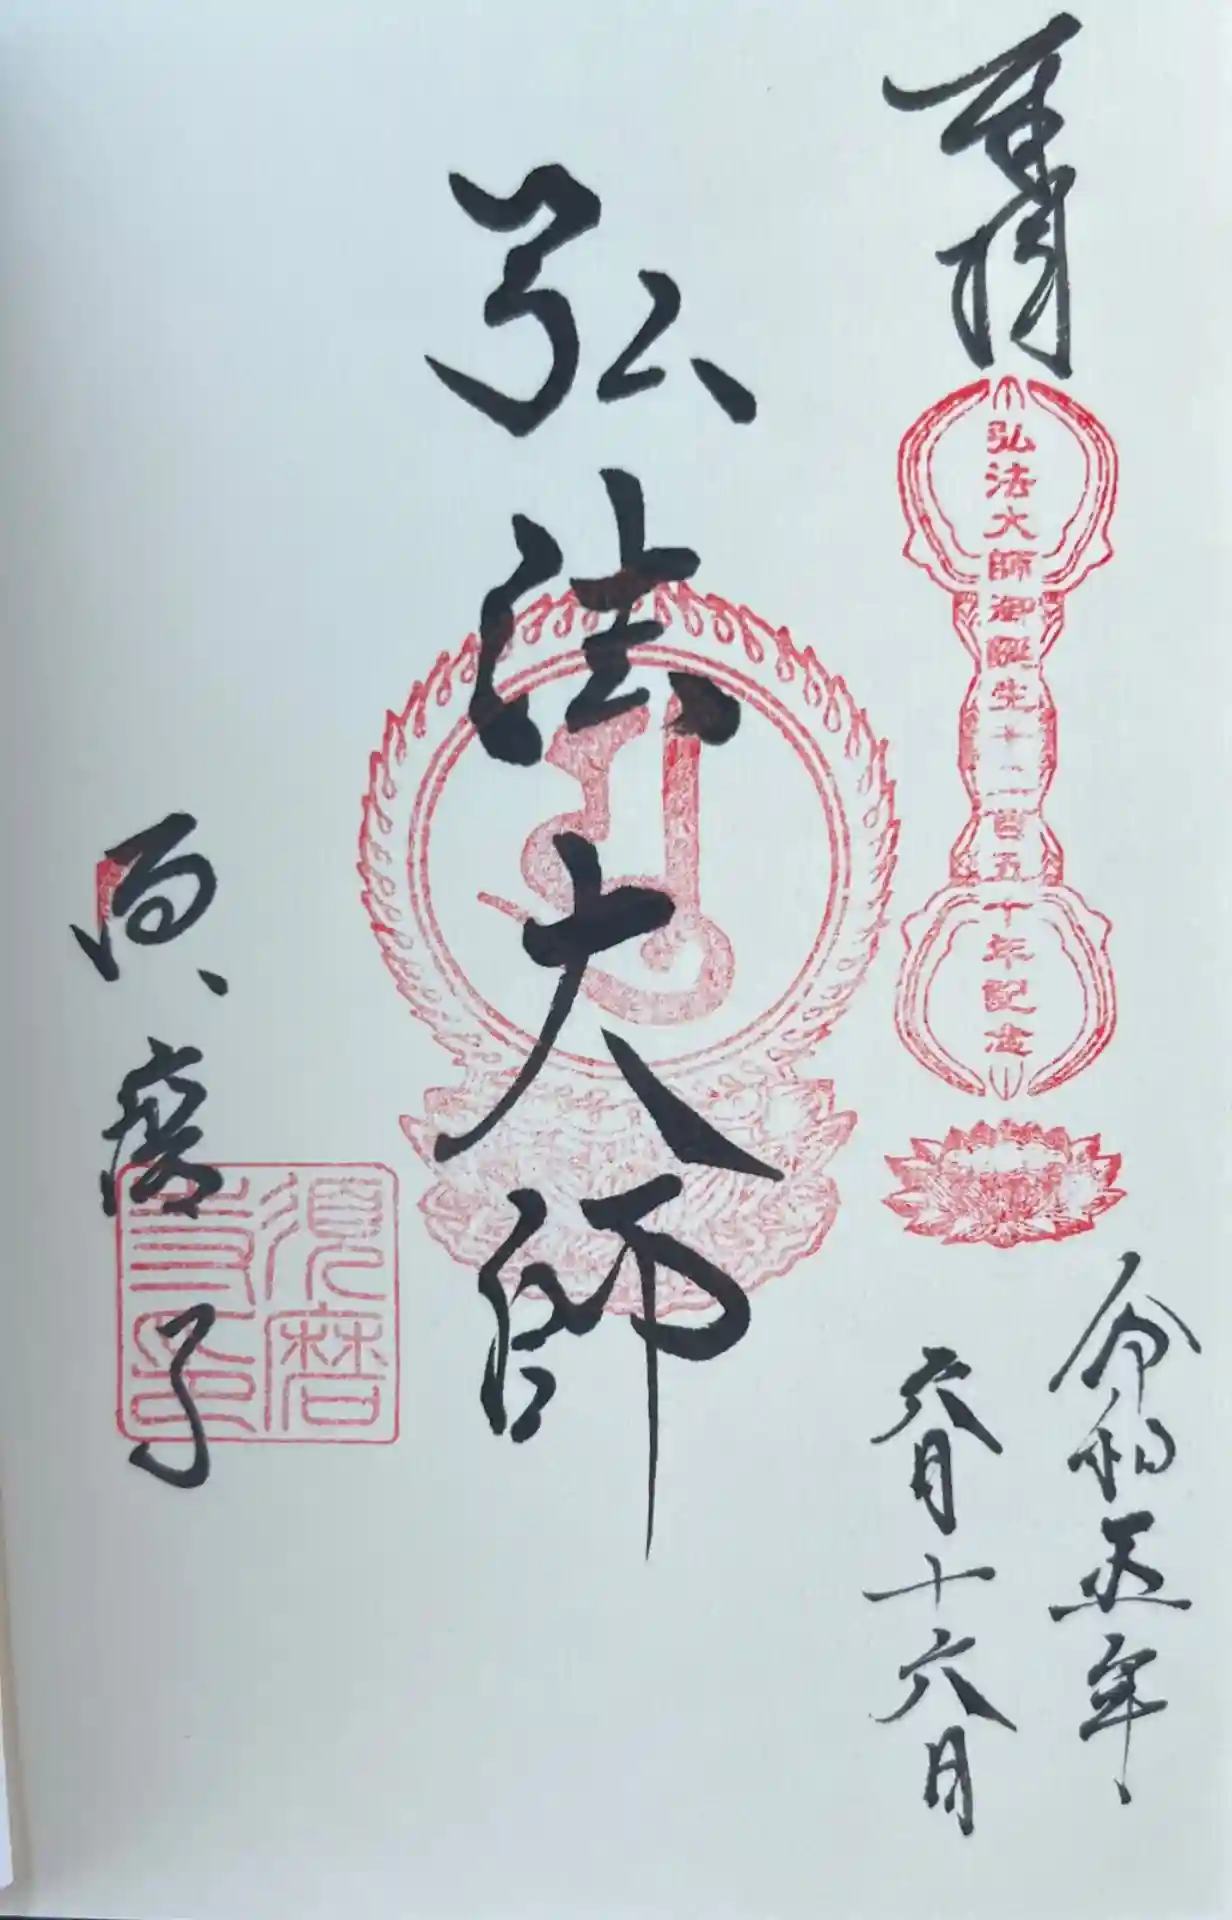 奉拝
弘法大師御誕生千二百五十年記念
令和五年
六月十六日
弘法大師
須磨寺
須磨
寺印